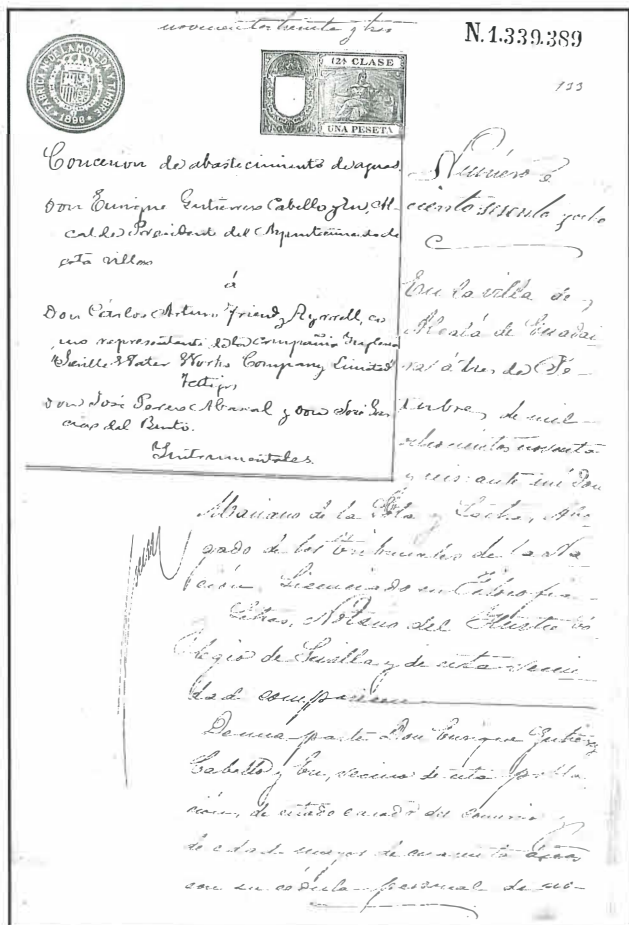 novecientos treinta y tres
N.1.339.389
FABRICA N. DE LA MONEDA Y TIMBRE
1896
12ª CLASE
UNA PESETA
133
Concesion de abastecimiento de aguas
Don Enrique Gutierrez Cabello y Eu, Al-
calde Presidente del Ayuntamiento de
esta villa
á
Don Cárlos Arturo Friend y Ayrrell, co
mo representante de la Compañia Inglesa
"Seville Water Works Company Limited"
Testigos
Don José Perez Abascal y Don José
del Bento.
Instrumentales.
Número
ciento sesenta y ocho
En la villa de
Alcalá de Guadai
ra á tres de
de mil
ochocientos noventa
y seis ante mi Don
Mariano de la Sota y Lastra, Abo
gado de los Tribunales de la Na
ción Licenciado en Filosofia
Letras, Notario del Ilustre Co
legio de Sevilla y de esta vecin
dad comparecen
De una parte Don Enrique Gutierrez
Cabello y Eu, vecino de esta pobla
ción, de estado casado del comercio y
de edad mayor de cuarenta años
con su cédula personal de no-